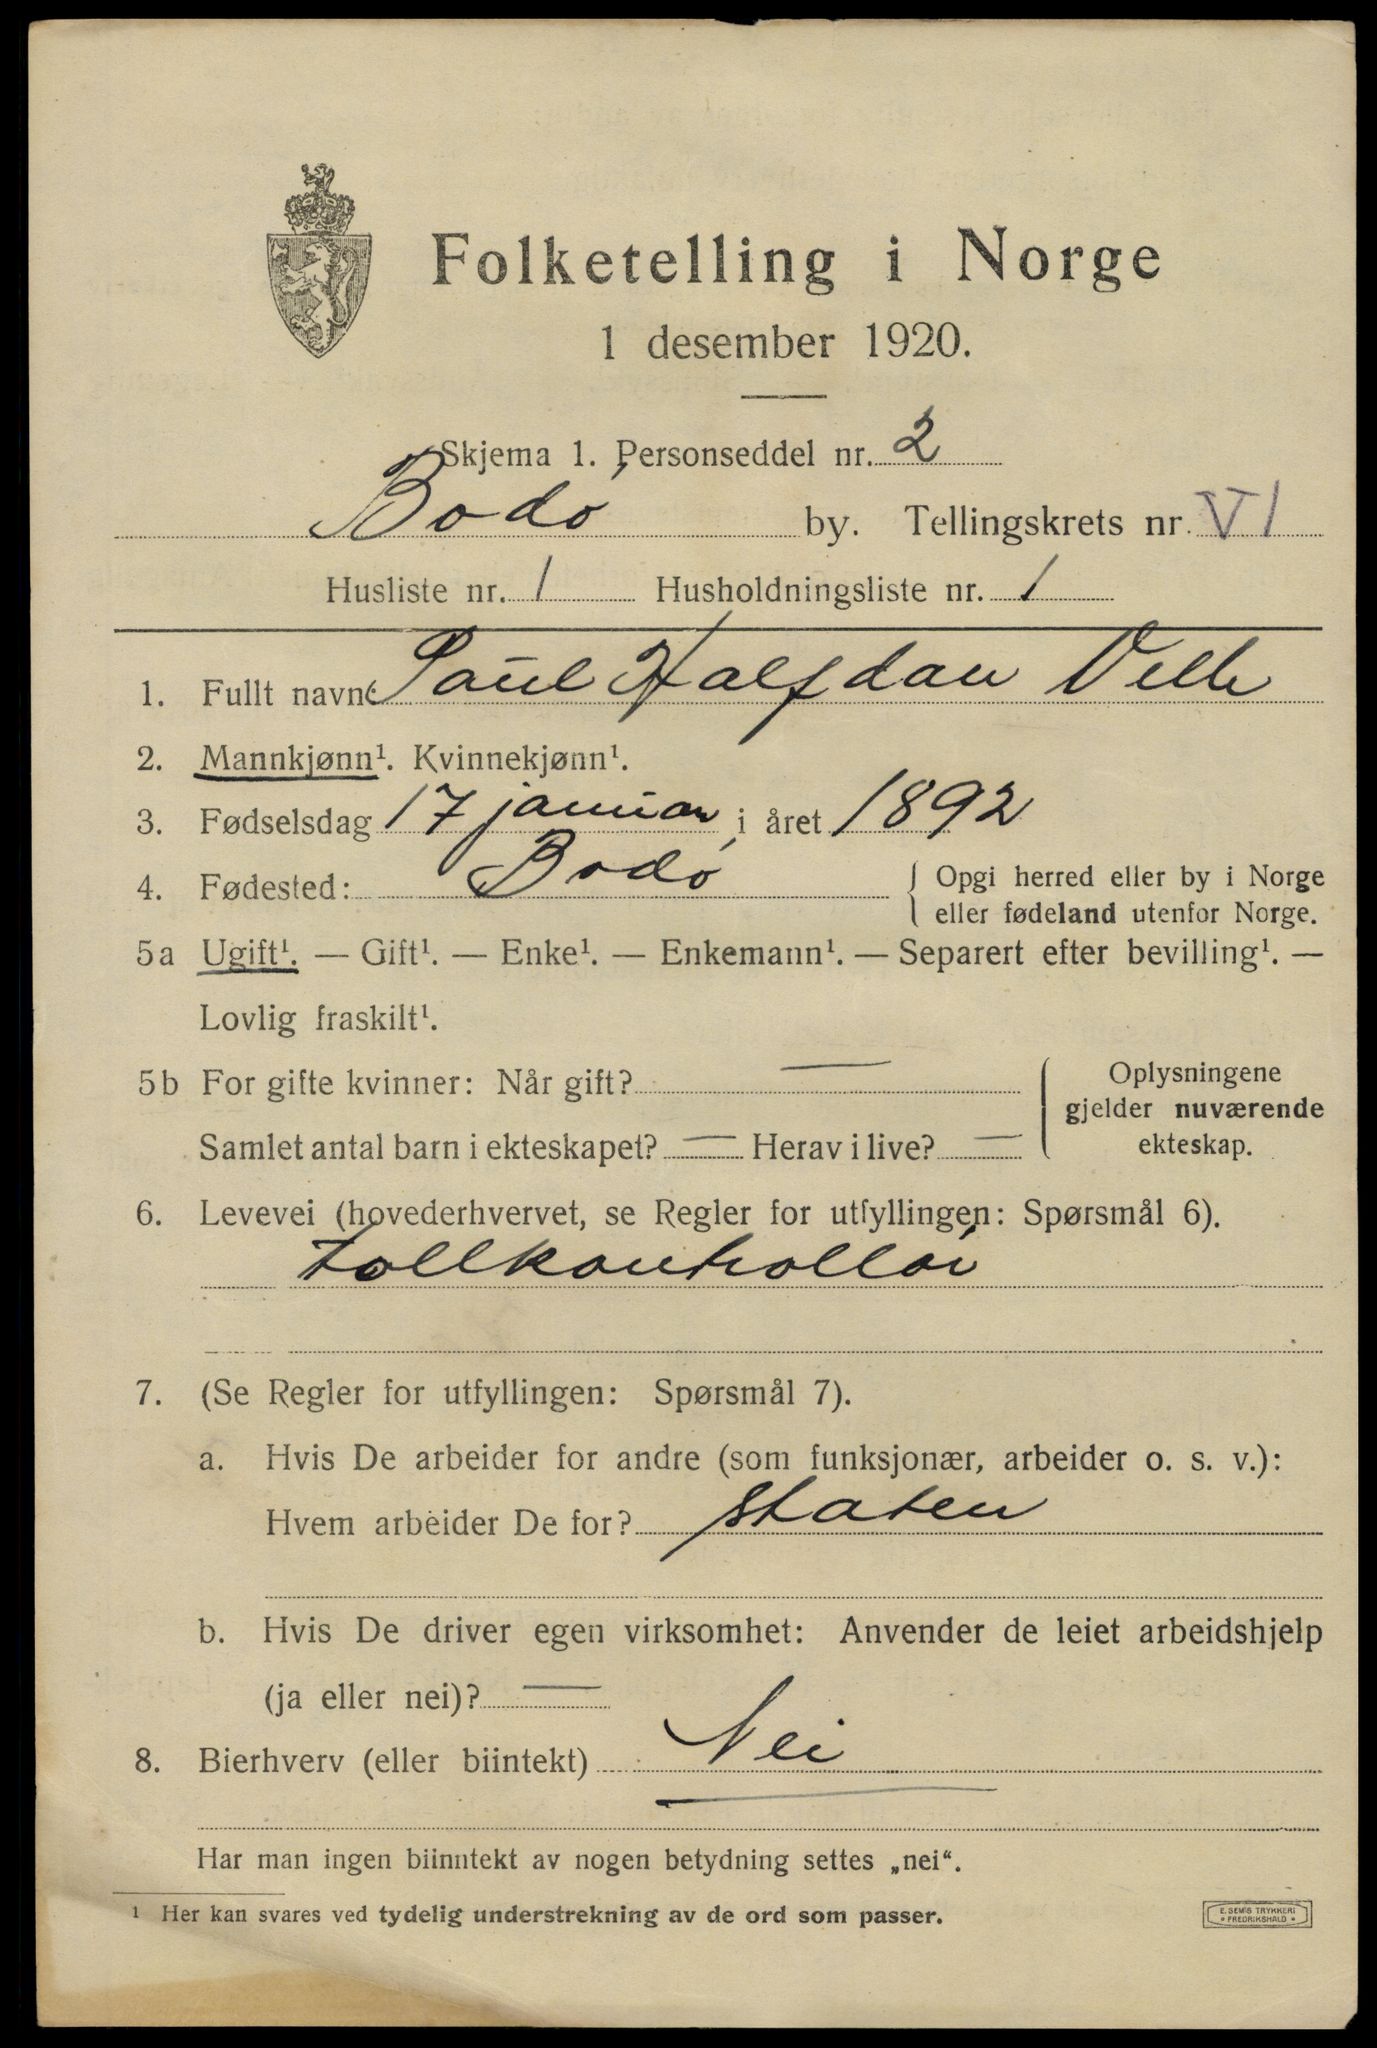 Folketelling i Norge
1 desember 1920.
Skjema 1. Personseddel nr. 2
Bodó by. Tellingskrets nr. VI
Husliste nr. 1 Husholdningsliste nr. 1
1. Fullt navn: Paul Halfdan
2. Mannkjønn¹. Kvinnekjønn¹.
3. Fødselsdag 17 januar i året 1892
4. Fødested: Bodó { Opgi herred eller by i Norge
eller fødeland utenfor Norge.
5a Ugift¹. — Gift¹. — Enke¹. — Enkemann¹. — Separert efter bevilling¹. —
Lovlig fraskilt¹.
5b For gifte kvinner: Når gift? — { Oplysningene
gjelder nuværende
Samlet antal barn i ekteskapet? — Herav i live? — ekteskap.
6. Levevei (hovederhvervet, se Regler for utfyllingen: Spørsmål 6).
tollkontrollór
7. (Se Regler for utfyllingen: Spørsmål 7).
a. Hvis De arbeider for andre (som funksjonær, arbeider o. s. v.):
Hvem arbeider De for? staten
b. Hvis De driver egen virksomhet: Anvender de leiet arbeidshjelp
(ja eller nei)? —
8. Bierhverv (eller biintekt) Nei
Har man ingen biinntekt av nogen betydning settes „nei“.
¹ Her kan svares ved tydelig understrekning av de ord som passer.
E. SEM'S TRYKKERI
• FREDRIKSHALD •